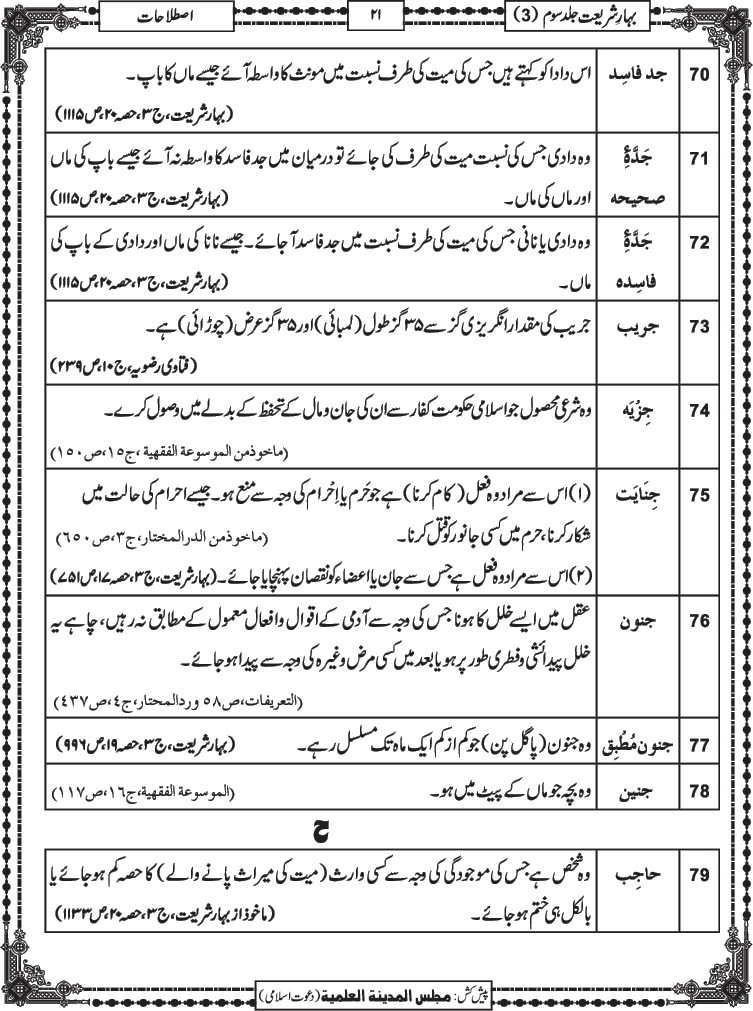 بہار شریعت جلد سوم (3)
۲۱
اصطلاحات
70 جد فاسِد اس دادا کو کہتے ہیں جس کی میت کی طرف نسبت میں مونث کا واسطہ آئے جیسے ماں کا باپ۔
(بہار شریعت،ج۳،حصہ۲۰،ص۱۱۱۵)
71 جَدَّۂِ وہ دادی جس کی نسبت میت کی طرف کی جائے تو درمیان میں جد فاسد کا واسطہ نہ آئے جیسے باپ کی ماں
صحیحہ اور ماں کی ماں۔ (بہار شریعت،ج۳،حصہ۲۰،ص۱۱۱۵)
72 جَدَّۂِ وہ دادی یا نانی جس کی میت کی طرف نسبت میں جد فاسد آجائے۔جیسے نانا کی ماں اور دادی کے باپ کی
فاسِدہ ماں۔ (بہار شریعت،ج۳،حصہ۲۰،ص۱۱۱۵)
73 جریب جریب کی مقدار انگریزی گز سے ۳۵ گز طول (لمبائی) اور ۳۵ گز عرض (چوڑائی) ہے۔
(فتاوی رضویہ،ج۱۰،ص۲۳۹)
74 جِزْیَہ وہ شرعی محصول جو اسلامی حکومت کفار سے ان کی جان و مال کے تحفظ کے بدلے میں وصول کرے۔
(ماخوذمن الموسوعة الفقهية ،ج۱۵،ص۱۵۰)
75 جِنَایَت (۱) اس سے مراد وہ فعل ( کام کرنا) ہے جو حَرم یا اِحْرام کی وجہ سے منع ہو۔ جیسے احرام کی حالت میں
شکار کرنا، حرم میں کسی جانور کو قتل کرنا۔ (ماخوذمن الدرالمختار،ج۳،ص۶۵۰)
(۲) اس سے مراد وہ فعل ہے جس سے جان یا اعضاء کو نقصان پہنچایا جائے۔ (بہار شریعت،ج۳،حصہ۱۷،ص۷۵۱)
76 جنون عقل میں ایسے خلل کا ہونا جس کی وجہ سے آدمی کے اقوال و افعال معمول کے مطابق نہ رہیں، چاہے یہ
خلل پیدائشی و فطری طور پر ہو یا بعد میں کسی مرض وغیرہ کی وجہ سے پیدا ہو جائے۔
(التعریفات،ص۵۸ وردالمحتار،ج٤،ص٤٣٧)
77 جنون مُطْبِق وہ جنون (پاگل پن) جو کم از کم ایک ماہ تک مسلسل رہے۔ (بہار شریعت،ج۳،حصہ۱۹،ص۹۹۶)
78 جنین وہ بچہ جو ماں کے پیٹ میں ہو۔ (الموسوعة الفقهية،ج۱۶،ص۱۱۷)
ح
79 حاجِب وہ شخص ہے جس کی موجودگی کی وجہ سے کسی وارث (میت کی میراث پانے والے) کا حصہ کم ہو جائے یا
بالکل ہی ختم ہو جائے۔ (ماخوذ از بہار شریعت،ج۳،حصہ۲۰،ص۱۱۳۳)
پیش کش: مجلس المدینة العلمیة (دعوت اسلامی)